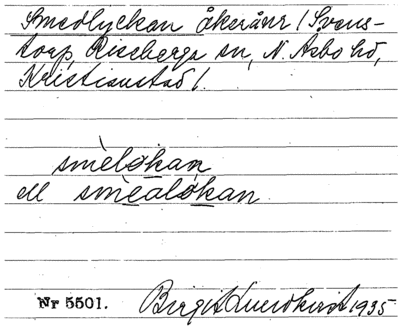 Smedlyckan åkerånr / Svens-
torp, Riseberga sn, N. Åsbo hd,
Kristianstad /.
smèløkan
ell smèaløkan
Nr 5501. Birgit 1935